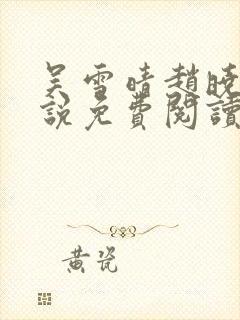 吴雪晴趙曉
說免費閱讀
黄瓷